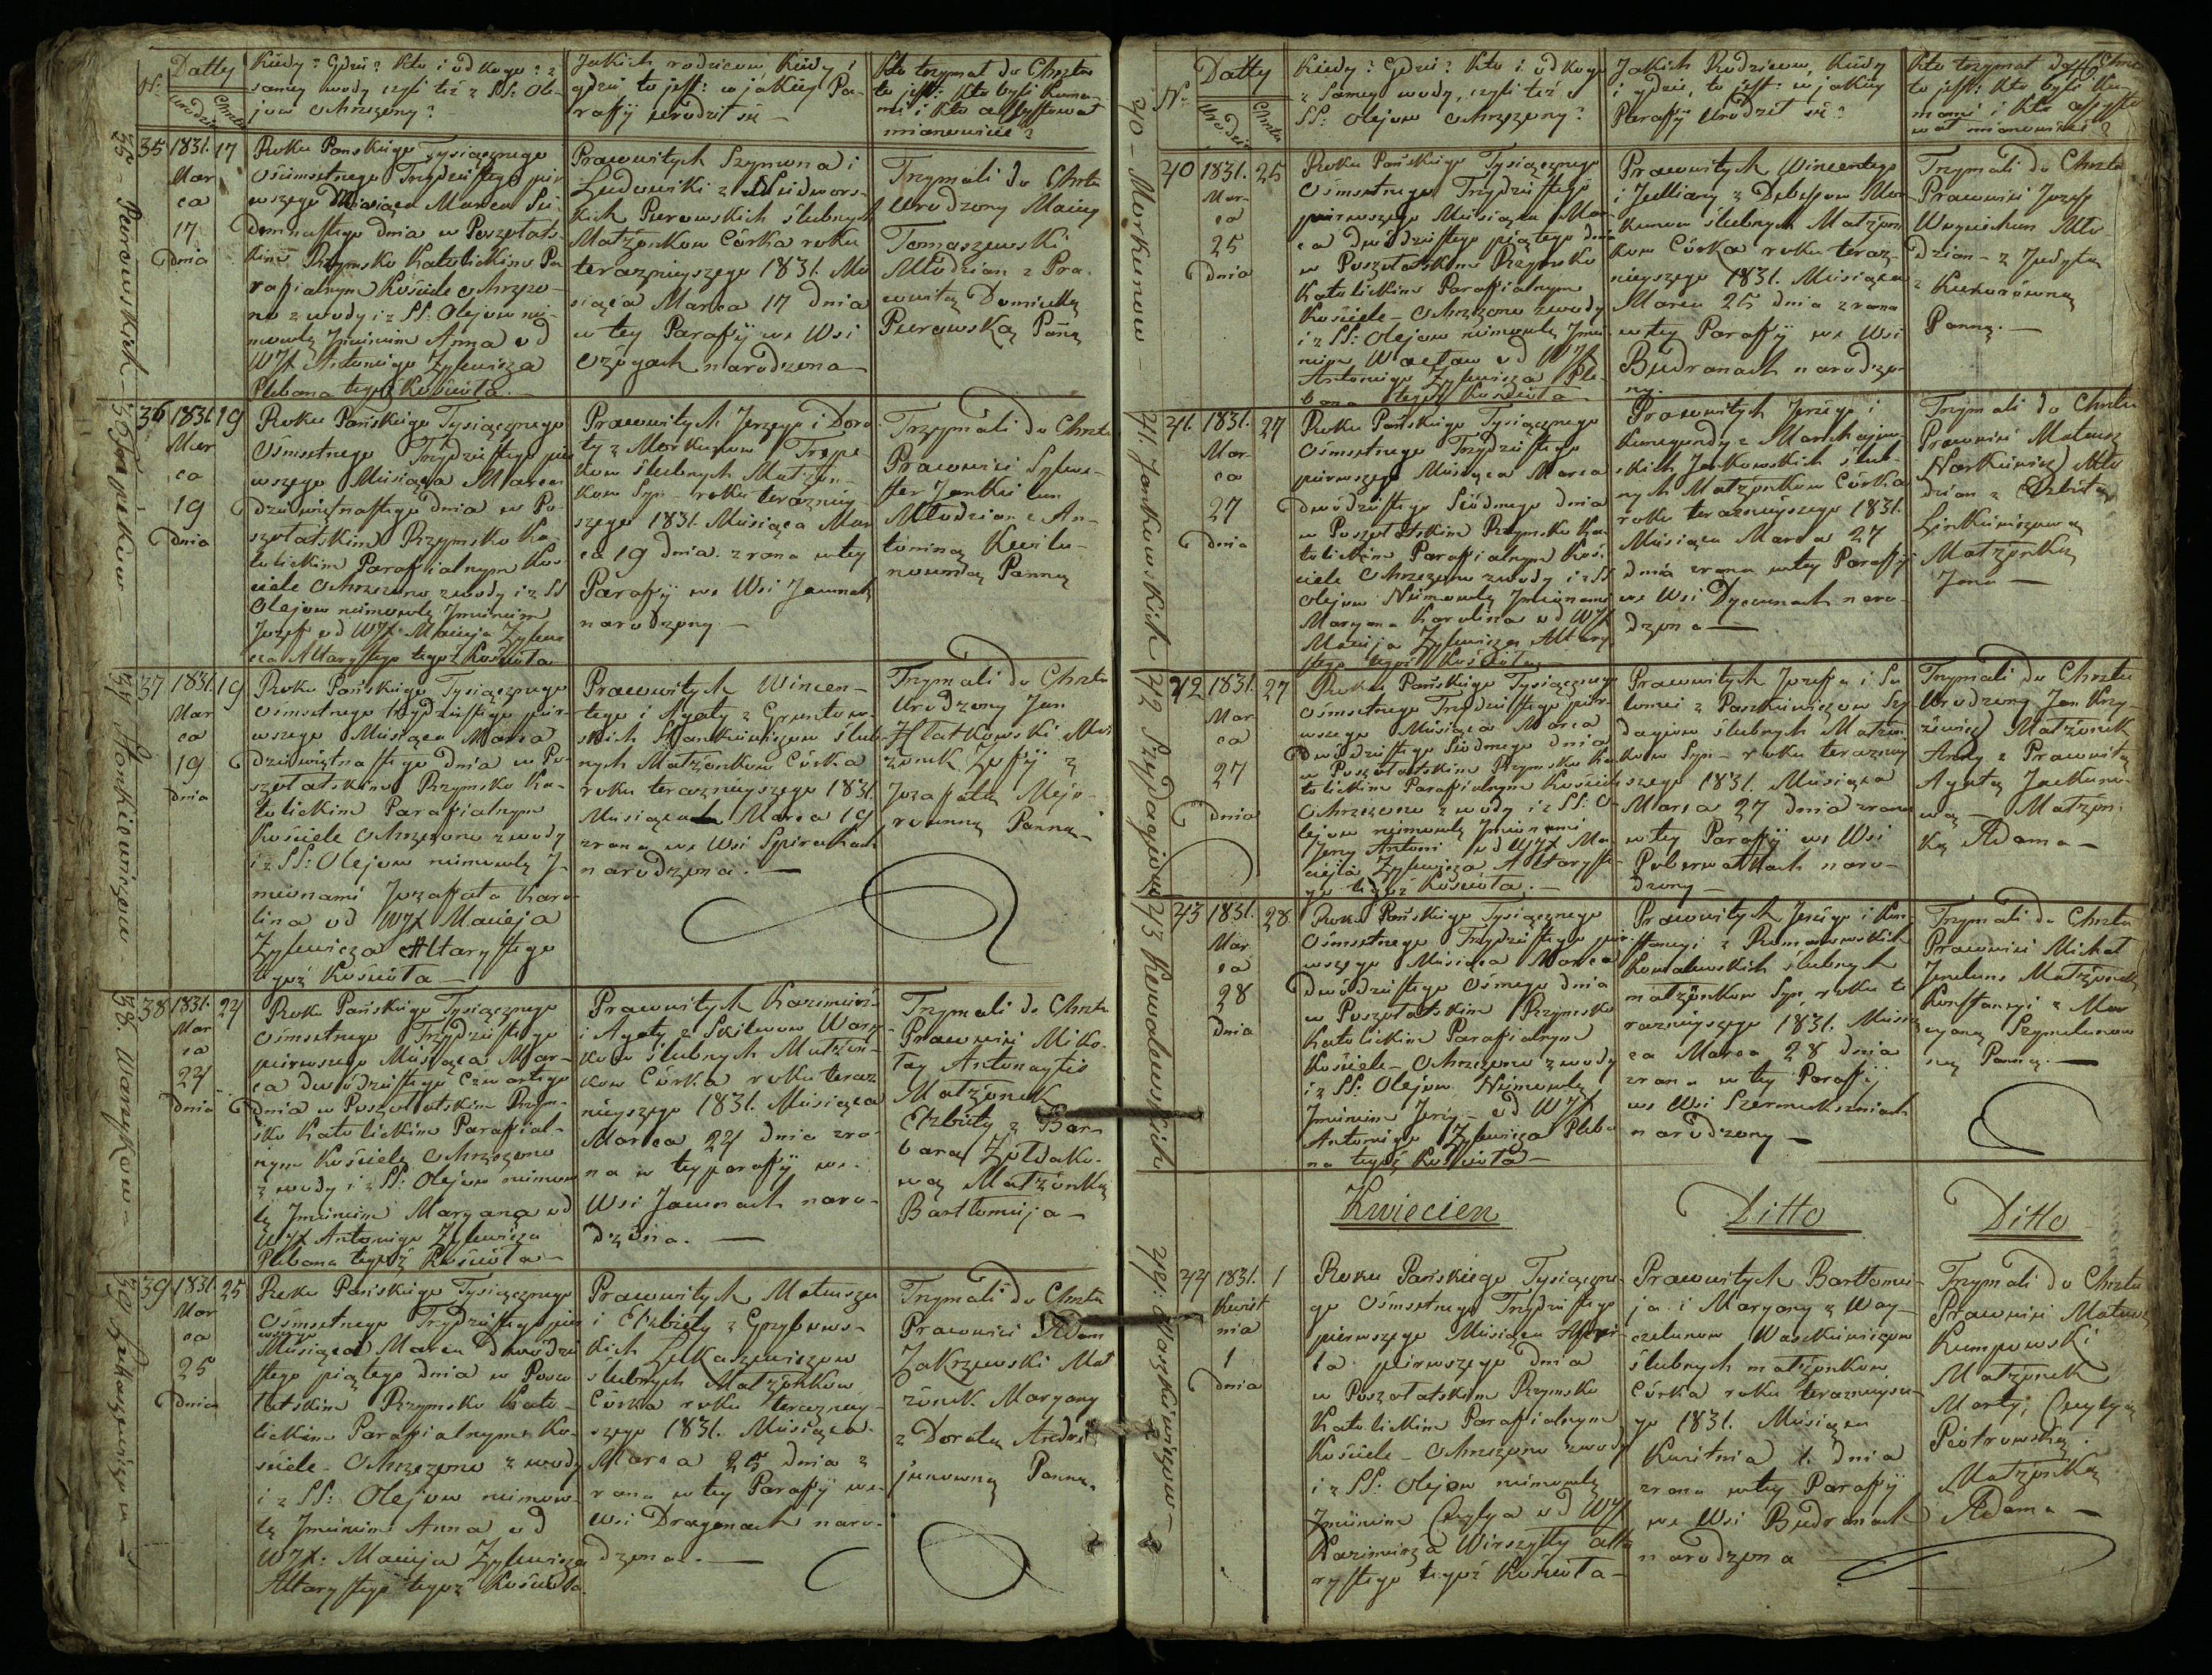 Nr.
Datty
Urodzin
Chrztu
Kiedy? Gdzie? Kto i od kogo? z
samey wody czyli też z SS: Ole-
jow ochrzczony?
Jakich rodzicow, Kiedy i
gdzie, to jest: w jakiey Pa-
rafii urodził się —
Kto trzymał do Chrztu
to jest: Kto byli Kuma-
mi i Kto assystował
mianowicie?
35 - Purowskich -
35
1831.
17
Mar
ca
17
dnia
Roku Panskiego Tysiącznego
Ośmsetnego Trzydziestego pier
wszego Miesiąca Marca Sie-
demnastego dnia w Poszołats-
kim Rzymsko Katolickim Pa
rafialnym Kościele ochrzczo-
no z wody i z SS: Olejow nie-
mowlę Jmieniem Anna od
WJX Antoniego Zylewicza
Plebana tegoż Kościoła. —
Prawowitych Szymona i
Ludowiki z
kich Purowskich ślubnych
Małżonkow Córka roku
teraznieyszego 1831. Mie
siąca Marca 17 dnia
w tey Parafij we Wsi
Ożogach narodzona —
Trzymali do Chrztu
Urodzony Maciey
Tomaszewski
Młodzian z Pra.
wowitą Dominiką
Purowską Panną
36
1831.
19
Mar
ca
19
dnia
Roku Pańskiego Tysiącznego
Ośmsetnego Trzydziestego pier
wszego Miesiąca Marca
dziewiętnastego dnia w Po-
szołatskim Rzymsko Ka-
tolickim Parafialnym Koś
ciele Ochrzczono z wody i z SS
Olejow niemowlę Jmieniem
Jozef od WJX Macieja Zylewi
cza Altarystego tegoż Kościoła
Prawowitych Jerzego i Doro
ty z Morkunow
kow ślubnych Małżon-
kow Syn - roku teraźniey-
szego 1831. Miesiąca Mar
ca 19 dnia. z rana w tey
Parafij we Wsi Jawnach
narodzony —
Trzymali do Chrztu
Prawowici Sylwe-
ster Jankielun
Młodzian z An-
toniną
Panną
37. Stankiewiczow -
37
1831.
19
Mar
ca
19
dnia
Roku Pańskiego Tysiącznego
Ośmsetnego trzydziestego pier-
wszego Miesiąca Marca
dziewiętnastego dnia w Po-
szołatskim Rzymsko Ka-
tolickim Parafialnym
Kościele Ochrzczono z wody
i z SS: Olejow niemowlę J-
mionami Jozafata Karo-
lina od WJX Macieja
Zylewicza Altarystego
tegoż Kościoła —
Prawowitych Wincen-
tego i Agaty z Gruntow-
skich Stankiewiczow ślub-
nych Małżonkow Córka
roku teraznieyszego 1831
Miesiąca Marca 19
z rana we Wsi Spirakach
narodzona. —
Trzymali do Chrztu
Urodzony Jan
Hlatkowski Mał
żonek Zofij z
Jozafatą Mejo-
rowną Panną -
38. Warzykow -
38
1831.
24
Mar
ca
24
dnia
Roku Pańskiego Tysiącznego
Ośmsetnego Trzydziestego
pierwszego Miesiąca Mar-
ca dwódziestego Czwartego
dnia w Poszołatskim Rzym-
sko Katolickim Parafial-
nym Kościele Ochrzczono
z wody i z SS: Olejow niemow
lę Jmieniem Maryana od
WJX Antoniego Zylewicza
Plebana tegoż Kościoła —
Prawowitych Kazimierza
i Agaty z Skilwow Warzy-
kow ślubnych Małżon-
kow Córka roku teraz
nieyszego 1831. Miesiąca
Marca 24 dnia zra-
na w tey parafij we.
Wsi Jawnach naro-
dzona. —
Trzymali do Chrztu
Prawowici Miko-
łay Antonaytis
Małżonek
Elzbiety z Bar-
barą Zołdako-
wą Małżonką
Bartłomieja —
39 Łukaszewiczow —
39
1831.
25
Mar
ca
25
dnia
Roku Pańskiego Tysiącznego
Ośmsetnego Trzydziestego pier
wszego
Miesiąca Marca dwódzie
stego piątego dnia w Poszo
łatskim Rzymsko Kato-
lickim Parafialnym Ko-
ściele - Ochrzczono z wody
i z SS: Olejow niemow-
lę Jmieniem Anna od
WJX: Macieja Zylewicza
Altarystego tegoż Kościoła.
Prawowitych Mateusza
i Elzbiety z Grzybows-
kich Łukaszewiczow
ślubnych Małżonkow
Córka roku terazniey-
szego 1831. Miesiąca.
Marca 25 dnia z
rana w tey Parafij we.
Wsi Draganach naro-
dzona. —
Trzymali do Chrztu
Prawowici Adam
Zakrzewski Mał
żonek Maryany
z Dorotą Andri-
junowną Panną.
Nr.
Datty
Urodzin
Chrztu
Kiedy? Gdzie? Kto i od kogo
z Samey wody, czyli też z
SS: Olejow ochrzczony?
Jakich Rodzicow, Kiedy
i gdzie, to jest: w jakiey
Parafij Urodził się?
Kto trzymał do Chrztu
to jest: Kto byli Ku-
mami i Kto assysto
wał mianowicie?
40 - Morkunow -
40
1831.
25
Mar-
ca
25
dnia
Roku Pańskiego Tysiącznego
Ośmsetnego Trzydziestego
pierwszego Miesiąca Mar-
ca dwódziestego piątego dnia
w Poszołatskim Rzymsko
Katolickim Parafialnym
Kościele - Ochrzczono z wody
i z SS: Olejow niemowlę Jmie-
niem Wacław od WJX
Antoniego Zylewicza Ple-
bana tegoż Kościoła
Prawowitych Wincentego
i Julliany z Debessow Mor
kunow ślubnych Małżon
kow Córka roku teraz-
nieyszego 1831. Miesiąca
Marca 25 dnia z rana
w tey Parafij we Wsi
Budranach narodzo-
ny.
Trzymali do Chrztu
Prawowici Jozef
Młodzian - z Judytą
Panną. —
41. Jankowskich
41.
1831.
27
Mar-
ca
27
dnia
Roku Pańskiego Tysiącznego
Ośmsetnego Trzydziestego
pierwszego Miesiąca Marca
dwódziestego Siódmego dnia
w Poszołatskim Rzymsko Ka-
tolickim Parafialnym Koś-
ciele Ochrzczono z wody i z SS
Olejow Niemowlę Jmionami
Maryana Karolina od WJX
Macieja Zylewicza Altary
stego tegoż Kościoła —
Prawowitych Jerzego i
Kunegundy z
skich Jankowskich ślub-
nych Małżonkow Córka
roku teraznieyszego 1831.
Miesiąca Marca 27
dnia zrana w tey Parafij
we Wsi naro-
dzona —
Trzymali do Chrztu
Prawowici Mateusz
Narkiewicz Mło
dzian z Elzbietą
Linkiewiczową
Małżonką
Jana —
42 Szydagiow
42
1831.
27
Mar
ca
27
dnia
Roku Pańskiego Tysiącznego
Ośmsetnego Trzydziestego pier-
wszego Miesiąca Marca
dwódziestego Siódmego dnia
w Poszołatskim Rzymsko Ka
tolickim Parafialnym Kościele
Ochrzczono z wody i z SS: O-
lejow niemowlę Jmionami
Jerzy Antoni od WJX Ma
cieja Zylewicza Altaryste-
go tegoż Kościoła. —
Prawowitych Jozefa i Sa
lomei z Paszkiewiczow Szy
dagiow ślubnych Małżon
kow Syn - roku terazniey
szego 1831. Miesiąca
Marca 27 dnia zrana
w tey Parafij we Wsi
naro-
dzony —
Trzymali do Chrztu
Urodzony Jan Krzy-
żewicz Małżonek
Anny z Prawowitą
Agatą
wą — Małżon-
ką Adama —
43 Kowalewskich
43
1831.
28
Mar
ca
28
dnia
Roku Pańskiego Tysiącznego
Ośmsetnego Trzydziestego pier-
wszego Miesiąca Marca
dwódziestego Ósmego dnia
w Poszołatskim Rzymsko
Katolickim Parafialnym
Kościele - Ochrzczono z wody
i z SS: Olejow Niemowlę
Jmieniem Jerzy - od WJX
Antoniego Zylewicza Pleba
na tegoż Kościoła —
Prawowitych Jerzego i Kon-
stancyi z Romanowskich
Kowalewskich ślubnych
małżonkow Syn, roku te
raznieyszego 1831. Miesią
ca Marca 28 dnia
zrana w tey Parafij
we Wsi Szermukszniach
narodzony —
Trzymali do Chrztu
Prawowici Michał
Małżonek
Konstancyi z Mar
yaną Szymelunow
ną Panną. —
Kwiecien
Ditto
Ditto
44. Waszkiewiczow —
44
1831.
1
Kwiet
nia
1
dnia
Roku Pańskiego Tysiączne-
go Ośmsetnego Trzydziestego
pierwszego Miesiąca
pierwszego dnia
w Poszołatskim Rzymsko
Katolickim Parafialnym
Kościele - Ochrzczono z wody
i z SS: Olejow niemowlę
Jmieniem Cecylya od WJX
Kazimierza Wirszyłły Alta
rystego tegoż Kościoła —
Prawowitych Bartłomie-
ja i Maryany z Way-
czelunow Waszkiewiczow
ślubnych małżonkow
Córka roku teraznieysze-
go 1831. Miesiąca
Kwietnia 1. dnia
zrana w tey Parafij
we Wsi Budranach
narodzona
Trzymali do Chrztu
Prawowici Mateusz
Rumpowski
Małżonek
Marty, Cecylyą
Piotrowską
Małżonką
Adama —